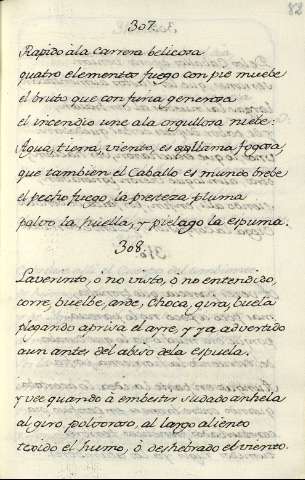 82
307.
Rapido àla Carrera belicosa
quatro elementos fuego con pie muebe
el bruto que con furia generosa
el incendio une ala orgullosa niebe:
Agua, tierra, viento, es llama fogosa,
que tambien el Caballo es mundo brebe
el pecho fuego, la presteza pluma
polvo la huella, y pielago la espuma.
308.
Laverinto, ó no visto, ó no entendido,
corre, buelbe, ande, choca, gira, buela
plegando aprisa el ayre, y ya advertido
aun antes del abuso dela espuela.
y vee quando à embestir sudado anhela
al giro polvoroso, al largo aliento
texido el humo, ò deshebrado el viento.